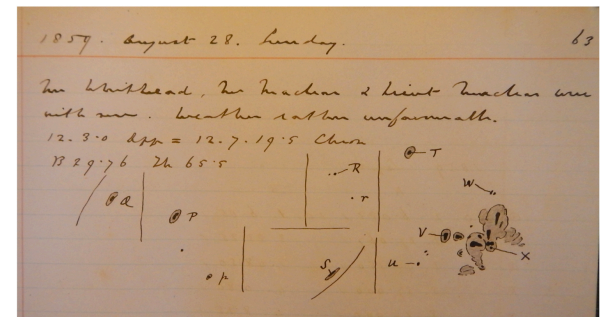 1859. August 28. Sunday. 63
Mr Whithead, Mr & Lieut were
with me. Weather rather unfavourable.
12.3.0 App = 12.7.19.5 Chron
B 29.76 Th 65.5
Q
P
p
R
r
S
T
u
V
W
X